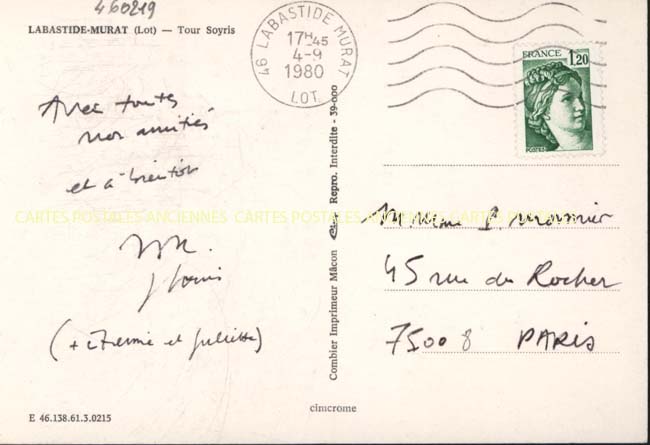 460219
LABASTIDE-MURAT (Lot) — Tour Soyris
46 LABASTIDE MURAT
17H45
4-9
1980
LOT
FRANCE
1,20
POSTES
Avec toutes
nos amitiés
et à bientôt
CARTES POSTALES ANCIENNES CARTES POSTALES ANCIENNES CARTES POSTALES ANCIENNES
M. Mme P.
45 rue du Rocher
75008 PARIS
(+ et Juliette)
Combier Imprimeur Mâcon Repro. Interdite - 39-000
E 46.138.61.3.0215
cimcrome